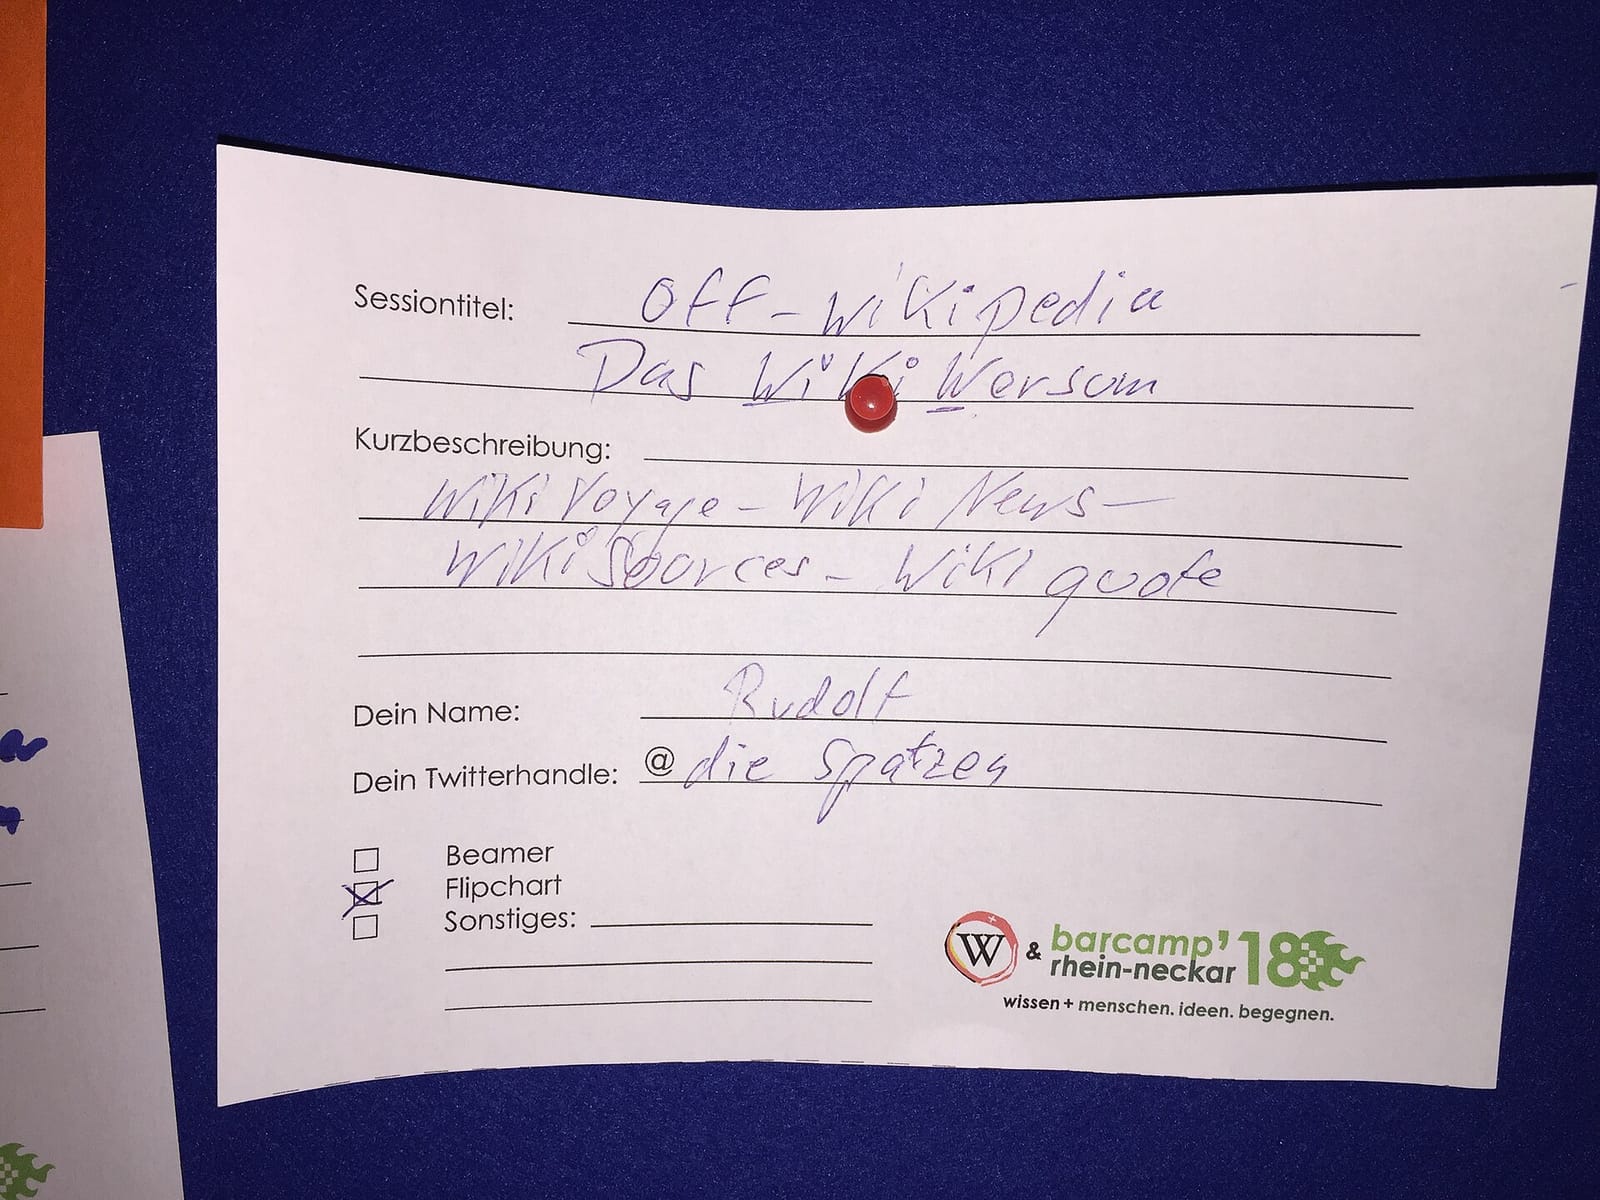 Sessiontitel: Off-Wikipedia
Das Wiki Wersom
Kurzbeschreibung:
Wiki Voyage - Wiki News -
Wiki Sources - Wiki quote
Dein Name: Rudolf
Dein Twitterhandle: @die Spatzen
Beamer
Flipchart
Sonstiges:
W & barcamp'18
rhein-neckar
wissen + menschen. ideen. begegnen.